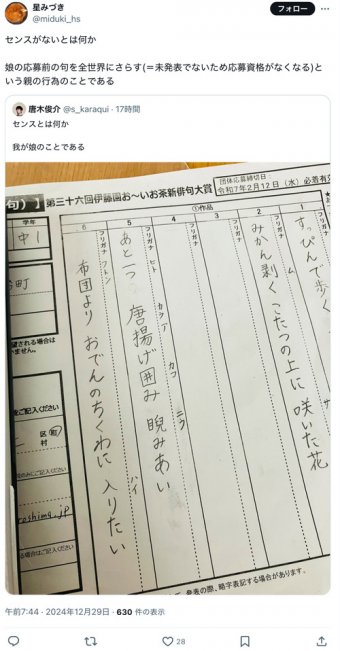 星みづき
@miduki_hs
フォロー
センスがないとは何か
娘の応募前の句を全世界にさらす(＝未発表でないため応募資格がなくなる)と
いう親の行為のことである
唐木俊介 @s_karaqui · 17時間
センスとは何か
我が娘のことである
句)】第三十六回伊藤園お〜いお茶新俳句大賞
団体応募締切日：
令和7年2月12日（水）必着有効
学年
中1
①作品
1
フリガナ
すっぴんで歩く
2
フリガナ
ム
みかん剥くこたつの上に 咲いた花
サ
3
フリガナ
4
フリガナ
5
フリガナ
ヒト
カラア
カコ
ニラ
ア
あと一つ 唐揚げ囲み 睨みあい
6
フリガナ
フトン
ハイ
布団より おでんのちくわに 入りたい
町
望される場合は
いません。
をご記入ください
区 町
村
のみにご記入ください
roshima.jp
る場合はご記入ください
発表の際、略字表記する場合があります。
午前7:44 · 2024年12月29日 · 630 件の表示
28